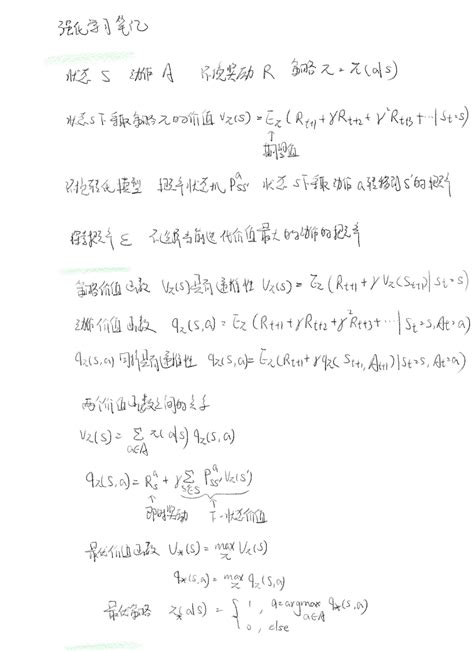 强化学习笔记
状态 S 动作 A 环境奖励 R 策略 π = π(a|s)
状态s下采取策略π的价值 Vπ(s) = Eπ(Rt+1 + γRt+2 + γ²Rt+3 + … | St=s)
↑
期望值
环境转化模型 概率状态机 Pᵃss' 状态s下采取动作a转移到s'的概率
探索率 ε 不选择当前迭代价值最大的动作的概率
策略价值函数 Vπ(s)具有递推性 Vπ(s) = Eπ(Rt+1 + γVπ(St+1) | St=s)
动作价值函数 qπ(s,a) = Eπ(Rt+1 + γRt+2 + γ²Rt+3 + … | St=s, At=a)
qπ(s,a)同样具有递推性 qπ(s,a) = Eπ(Rt+1 + γqπ(St+1, At+1) | St=s, At=a)
两个价值函数之间的关系
Vπ(s) = Σa∈A π(a|s) qπ(s,a)
qπ(s,a) = Rᵃs + γ Σs'∈S Pᵃss' Vπ(s')
↑ ↑
即时奖励 下一状态价值
最优价值函数 V*(s) = maxπ Vπ(s)
q*(s,a) = maxπ qπ(s,a)
最优策略 π*(a|s) = { 1, a=argmax a∈A q*(s,a)
0, else